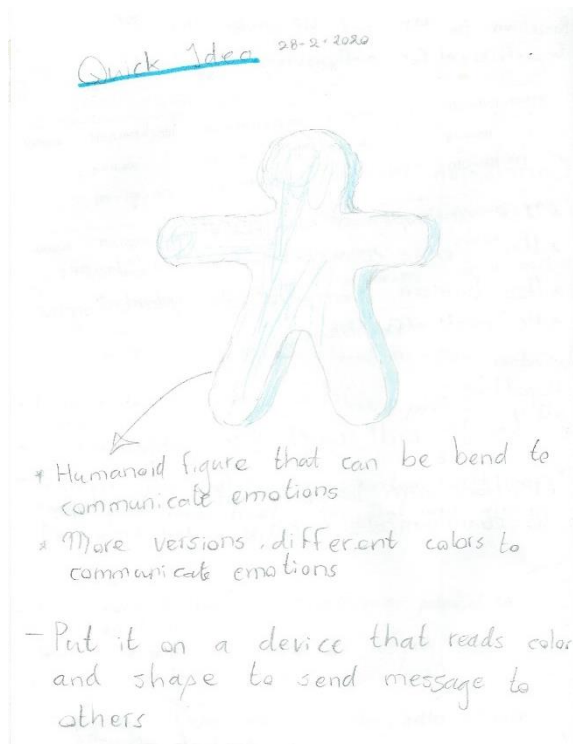 Quick Idea 28-2-2020
* Humanoid figure that can be bend to
communicate emotions
* More versions. different colors to
communicate emotions
- Put it on a device that reads color
and shape to send message to
others